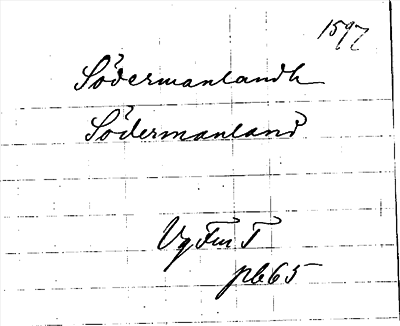 1597
Södermanlandh
Södermanland
Vg Fu T
pl 65